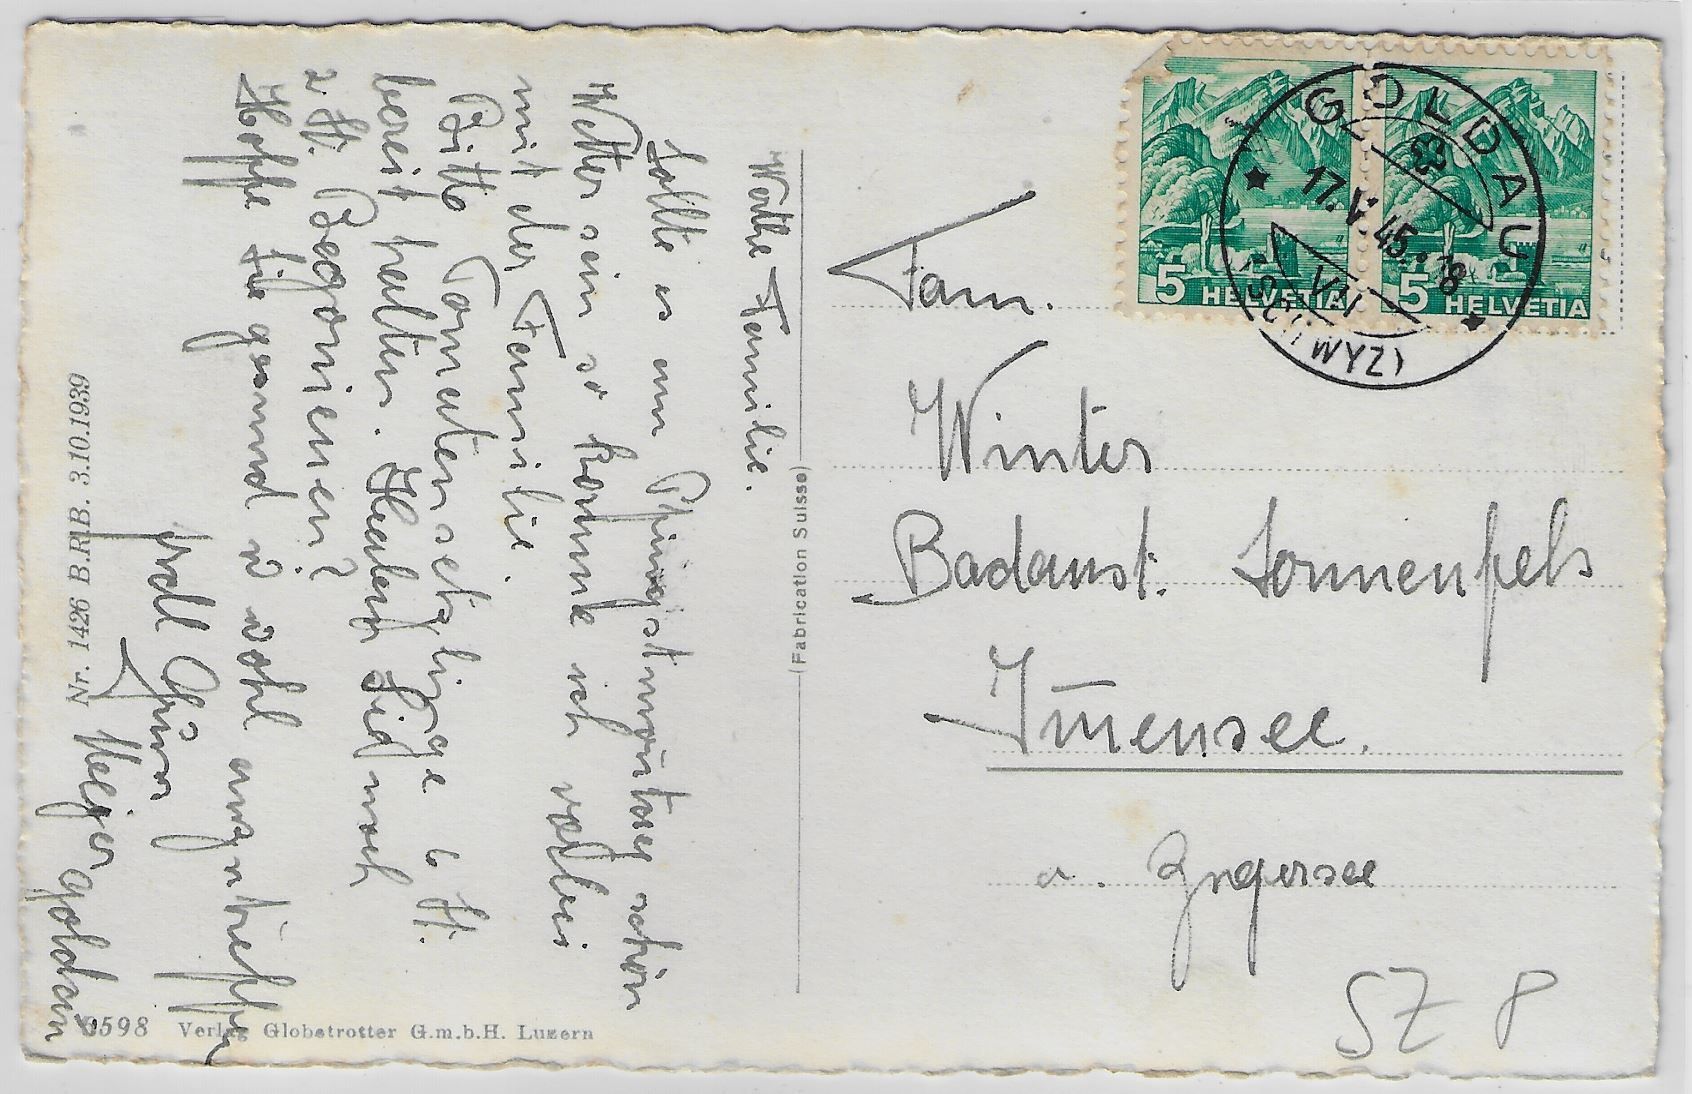 Werthe Familie.
Sollte es am Pfingstmontag schön
Wetter sein so komme ich vorbei
mit der Familie.
Bitte Tomatensetzlinge 6 St.
bereit halten. Haben Sie noch
2 St. Begonienen?
Hoffe Sie gesund u wohl anzutreffen
Meijer Goldau
Nr. 1426 B.RB. 3.10.1939
0598 Verlag Globetrotter G.m.b.H. Luzern
(Fabrication Suisse)
5 HELVETIA
5 HELVETIA
GOLDAU
17.V.45.-18
VII
(SCHWYZ)
Fam.
Winter
Badanst. Sonnenfels
Immensee.
a. Zugersee
SZ 8